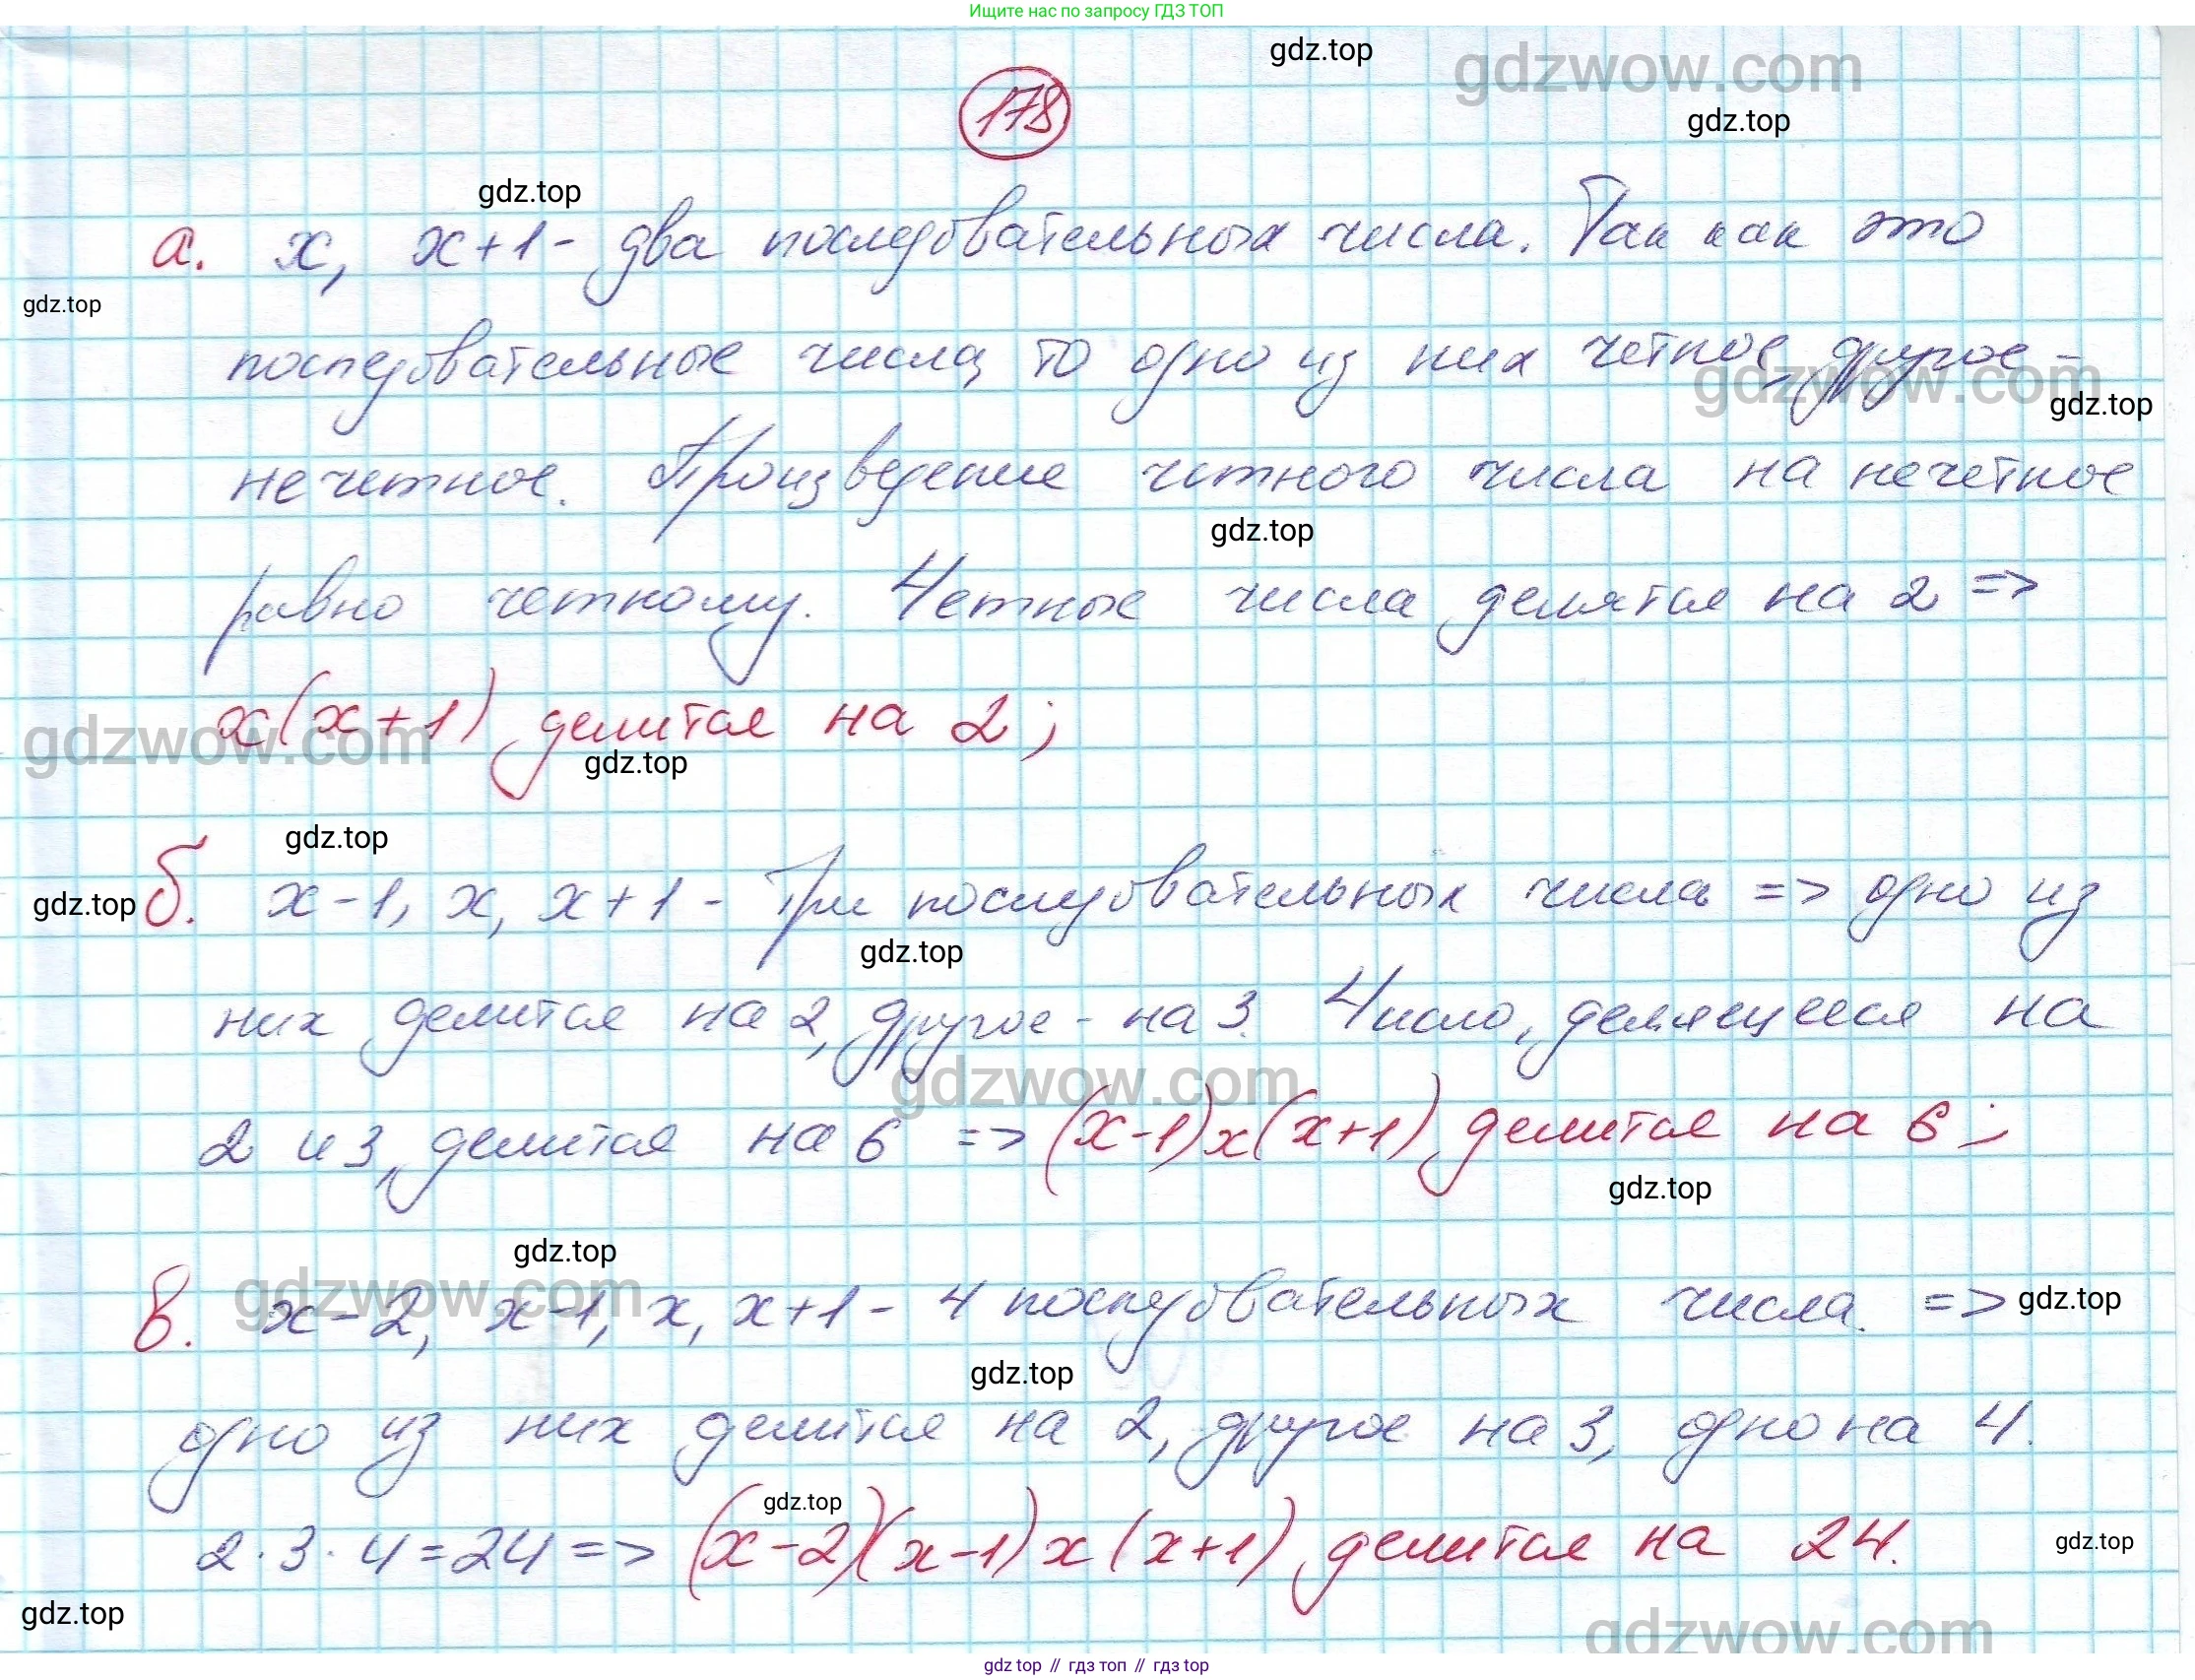 Ищите нас по запросу ГДЗ ТОП
gdz.top
gdzwow.com
178
gdz.top
gdz.top
а. x, x+1 - два последовательных числа. Так как это
gdz.top
последовательные числа, то одно из них четное, другое -
gdzwow.com
gdz.top
нечетное. Произведение четного числа на нечетное
gdz.top
равно четному. Четные числа делятся на 2 =>
x(x+1) делится на 2;
gdzwow.com
gdz.top
gdz.top
б. x-1, x, x+1 - три последовательных числа => одно из
gdz.top
gdz.top
них делится на 2, другое - на 3. Число, делящееся на
gdzwow.com
2 и 3, делится на 6 => (x-1)x(x+1) делится на 6;
gdz.top
gdz.top
gdzwow.com
в. x-2, x-1, x, x+1 - 4 последовательных числа. =>
gdz.top
gdz.top
одно из них делится на 2, другое на 3, одно на 4.
gdz.top
2·3·4=24 => (x-2)(x-1)x(x+1) делится на 24.
gdz.top
gdz.top
gdzwow.com
gdz top // гдз топ // гдз top